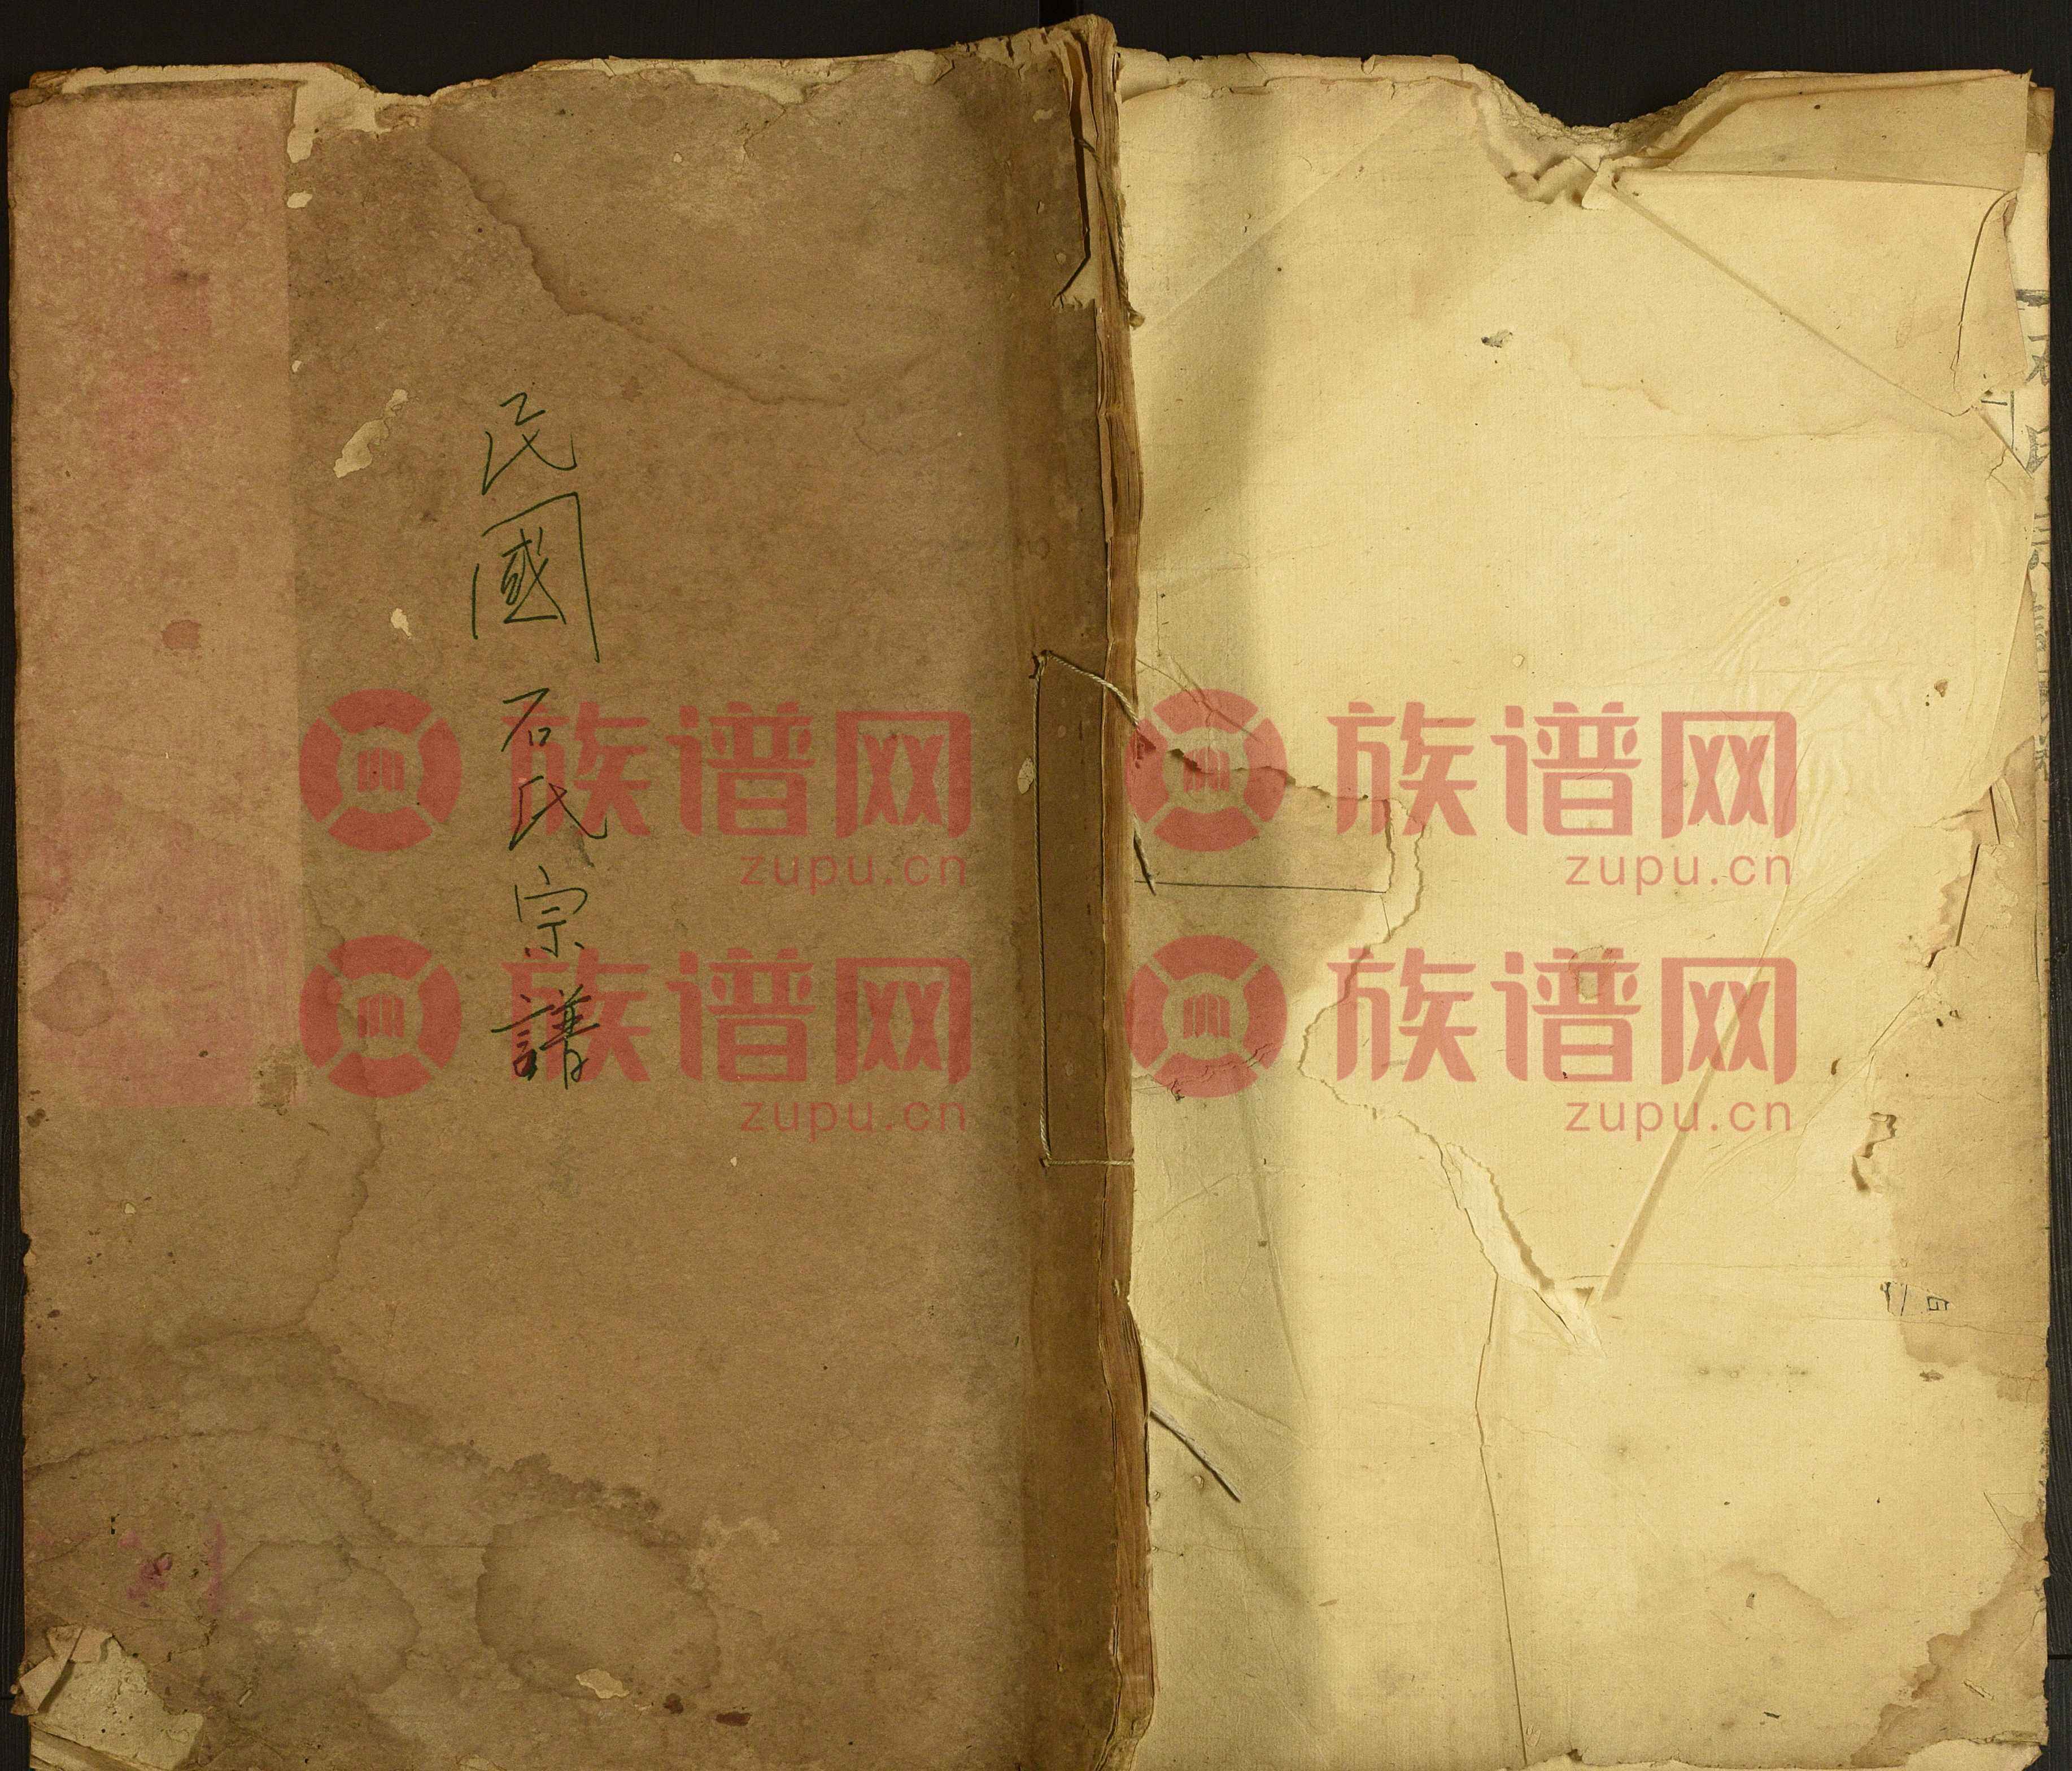 民國石氏宗譜
族谱网
zupu.cn
族谱网
zupu.cn
族谱网
zupu.cn
族谱网
zupu.cn